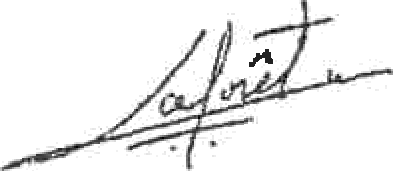 Laforêt